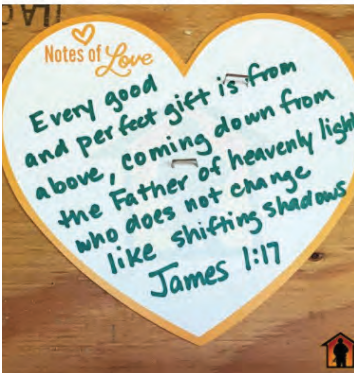 Notes of Love
Every good
and perfect gift is from
above, coming down from
the Father of heavenly light
who does not change
like shifting shadows
James 1:17